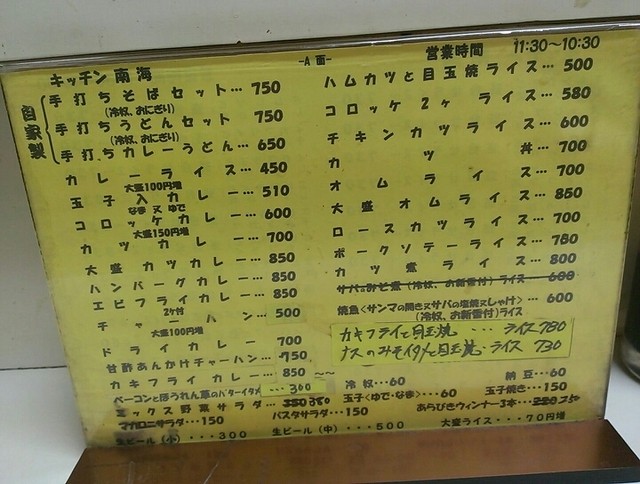 -A 面-
営業時間 11:30~10:30
キッチン 南海
自家製
手打ちそばセット… 750
(冷奴、おにぎり)
手打ちうどんセット 750
(冷奴、おにぎり)
手打ちカレーうどん… 650
カレーライス… 450
大盛100円増
玉子入カレー… 510
なま又ゆで
コロッケカレー… 600
大盛150円増
カツカレー… 700
大盛カツカレー… 850
ハンバーグカレー… 850
エビフライカレー… 850
2ケ付
チャーハン… 500
大盛100円増
ドライカレー 700
甘酢あんかけチャーハン… 750
カキフライカレー 850 ~~
ベーコンとほうれん草のバターイタメ … 300
ミックス野菜サラダ… 350 380
マカロニサラダ…150
パスタサラダ…150
生ビール (小) ・・・300
生ビール (中) ・・・500
ハムカツと目玉焼ライス… 500
コロッケ2ヶライス… 580
チキンカツライス… 600
カツ丼… 700
オムライス… 700
大盛オムライス… 850
ロースカツライス… 700
ポークソテーライス… 780
カツ煮ライス… 800
サバのみそ煮 (冷奴、お新香付) ライス… 600
焼魚<サンマの開き又サバの塩焼又しゃけ>… 600
(冷奴、お新香付)ライス
カキフライと目玉焼 ・・・ ライス 780
ナスのみそイタメと目玉焼・ライス 730
冷奴…60
納豆…60
玉子<ゆで・なま>…60
玉子焼き…150
あらびきウィンナー3本… 220 250
大盛ライス・・・70円増